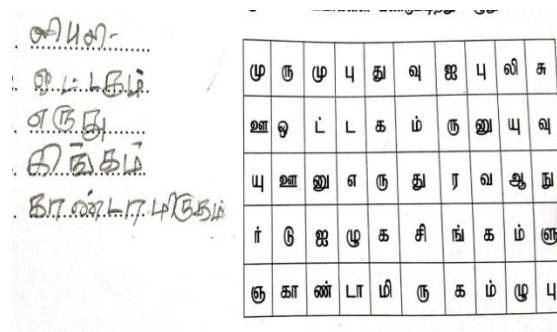 புலி
ஒட்டகம்
எருது
சிங்கம்
காண்டாமிருகம்
மு ரு மு பு து வு ஐ பு லி சு
ஊ ஒ ட் ட க ம் ரு னு யு வு
யு ஊ னு எ ரு து ர வ ஆ நு
ர் டு ஐ ழு க சி ங் க ம் ளு
ஞ கா ண் டா மி ரு க ம் ழு பு